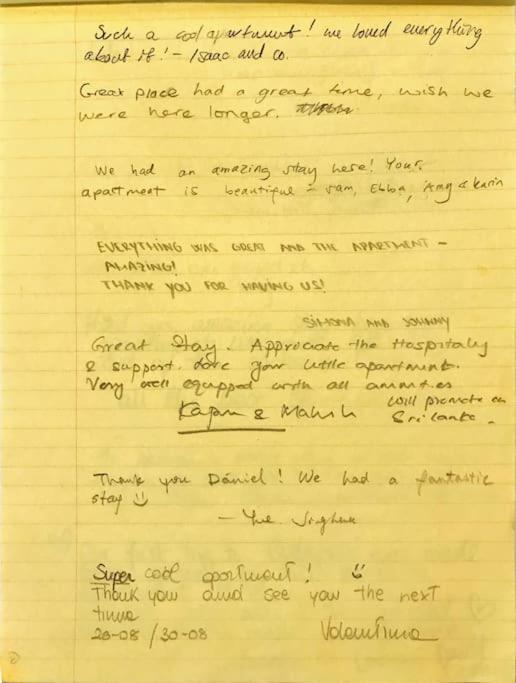 Such a cool apartment! we loved everything
about it! - Isaac and co.
Great place had a great time, wish we
were here longer.
We had an amazing stay here! Your
apartment is beautiful - Sam, Ebba, Amy & Karin
EVERYTHING WAS GREAT AND THE APARTMENT -
AMAZING!
THANK YOU FOR HAVING US!
SIMONA AND JOHNNY
Great Stay. Appreciate the Hospitality
& support. Love your little apartment.
Very well equipped with all amnities
will promote in
& Sri Lanka.
Thank you Dániel! We had a fantastic
stay :)
- The
Super cool apartment! :)
Thank you and see you the next
time
20-08 / 30-08 Valentina